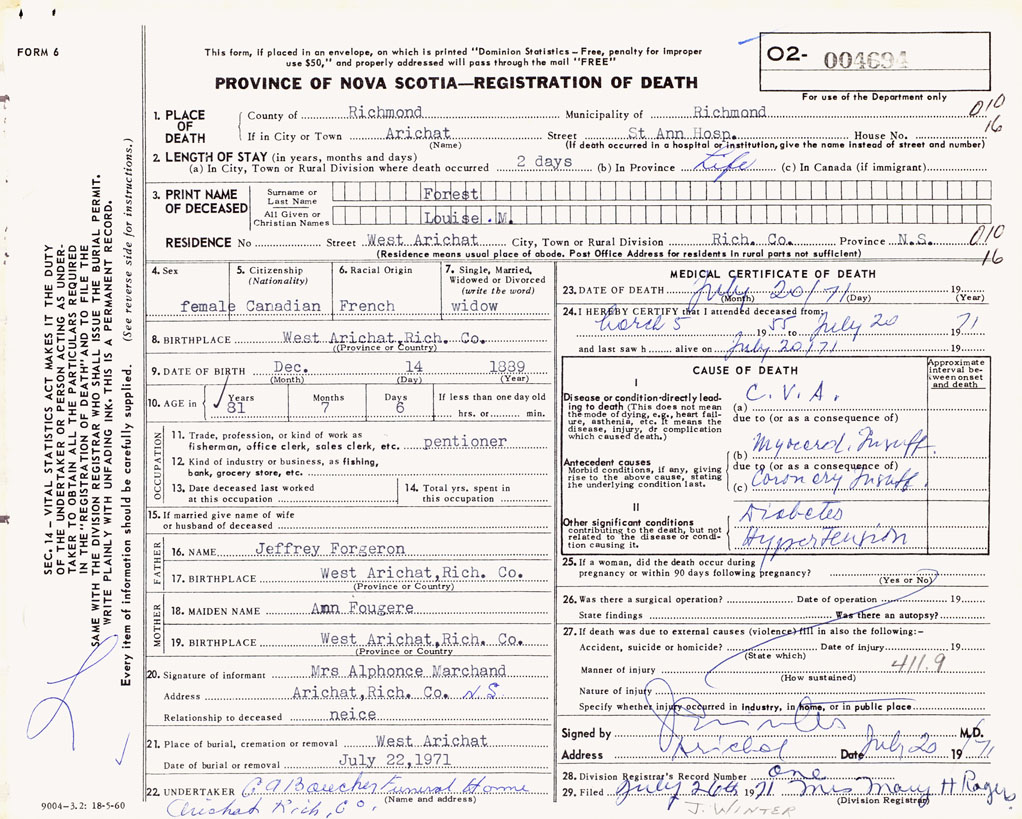 FORM 6
This form, if placed in an envelope, on which is printed "Dominion Statistics – Free, penalty for improper
use $50," and properly addressed will pass through the mail "FREE"
O2- 004694
PROVINCE OF NOVA SCOTIA—REGISTRATION OF DEATH
For use of the Department only
1. PLACE OF DEATH
County of Richmond Municipality of Richmond 010
If in City or Town Arichat Street St Ann Hosp. House No. 16
(Name) (If death occurred in a hospital or institution, give the name instead of street and number)
2. LENGTH OF STAY (in years, months and days)
(a) In City, Town or Rural Division where death occurred 2 days (b) In Province Life (c) In Canada (if immigrant)
3. PRINT NAME OF DECEASED
Surname or Last Name Forest
All Given or Christian Names Louise.M.
RESIDENCE No Street West Arichat City, Town or Rural Division Rich. Co. Province N.S. 010
(Residence means usual place of abode. Post Office Address for residents in rural parts not sufficient) 16
4. Sex female
5. Citizenship (Nationality) Canadian
6. Racial Origin French
7. Single, Married, Widowed or Divorced (write the word) widow
8. BIRTHPLACE West Arichat,Rich. Co.
((Province or Country)
9. DATE OF BIRTH Dec. 14 1889
(Month) (Day) (Year)
10. AGE in Years Months Days If less than one day old
81 7 6 hrs. or min.
OCCUPATION
11. Trade, profession, or kind of work as
fisherman, office clerk, sales clerk, etc. pentioner
12. Kind of industry or business, as fishing,
bank, grocery store, etc.
13. Date deceased last worked
at this occupation
14. Total yrs. spent in
this occupation
15. If married give name of wife
or husband of deceased
FATHER
16. NAME Jeffrey Forgeron
17. BIRTHPLACE West Arichat,Rich. Co.
(Province or Country)
MOTHER
18. MAIDEN NAME Ann Fougere
19. BIRTHPLACE West Arichat,Rich. Co.
(Province or Country
20. Signature of informant Mrs Alphonce Marchand
Address Arichat,Rich. Co. N.S
Relationship to deceased neice
21. Place of burial, cremation or removal West Arichat
Date of burial or removal July 22,1971
22. UNDERTAKER C A Boucher Funeral Home
(Name and address)
Arichat Rich, Co.
MEDICAL CERTIFICATE OF DEATH
23. DATE OF DEATH July 20/71 19
(Month) (Day) (Year)
24. I HEREBY CERTIFY that I attended deceased from:
March 5 1955 to July 20 1971
and last saw h alive on July 20/71 19
CAUSE OF DEATH
Approximate interval between onset and death
I
Disease or condition directly leading to death (This does not mean the mode of dying, e.g., heart failure, asthenia, etc. It means the disease, injury, or complication which caused death.)
(a) C.V.A.
due to (or as a consequence of)
Antecedent causes
Morbid conditions, if any, giving rise to the above cause, stating the underlying condition last.
(b) Myocard. Insuff.
due to (or as a consequence of)
(c) Coronary Insuff.
II
Other significant conditions
contributing to the death, but not related to the disease or condition causing it.
Diabetes
Hypertension
25. If a woman, did the death occur during
pregnancy or within 90 days following pregnancy?
(Yes or No)
26. Was there a surgical operation? Date of operation 19
State findings Was there an autopsy?
27. If death was due to external causes (violence) fill in also the following:–
Accident, suicide or homicide? Date of injury 19
(State which)
Manner of injury 411.9
(How sustained)
Nature of injury
Specify whether injury occurred in industry, in home, or in public place
Signed by M.D.
Address Arichat Date July 20 1971
28. Division Registrar's Record Number one
29. Filed July 26th 1971 Mrs Mary H Rogers
(Division Registrar)
J. WINTER
SEC. 14 – VITAL STATISTICS ACT MAKES IT THE DUTY
OF THE UNDERTAKER OR PERSON ACTING AS UNDER-
TAKER TO OBTAIN ALL THE PARTICULARS REQUIRED
IN THE "REGISTRATION OF DEATH" AND TO FILE THE
SAME WITH THE DIVISION REGISTRAR WHO SHALL ISSUE THE BURIAL PERMIT.
WRITE PLAINLY WITH UNFADING INK. THIS IS A PERMANENT RECORD.
Every item of information should be carefully supplied. (See reverse side for instructions.)
9004–3.2: 18-5-60